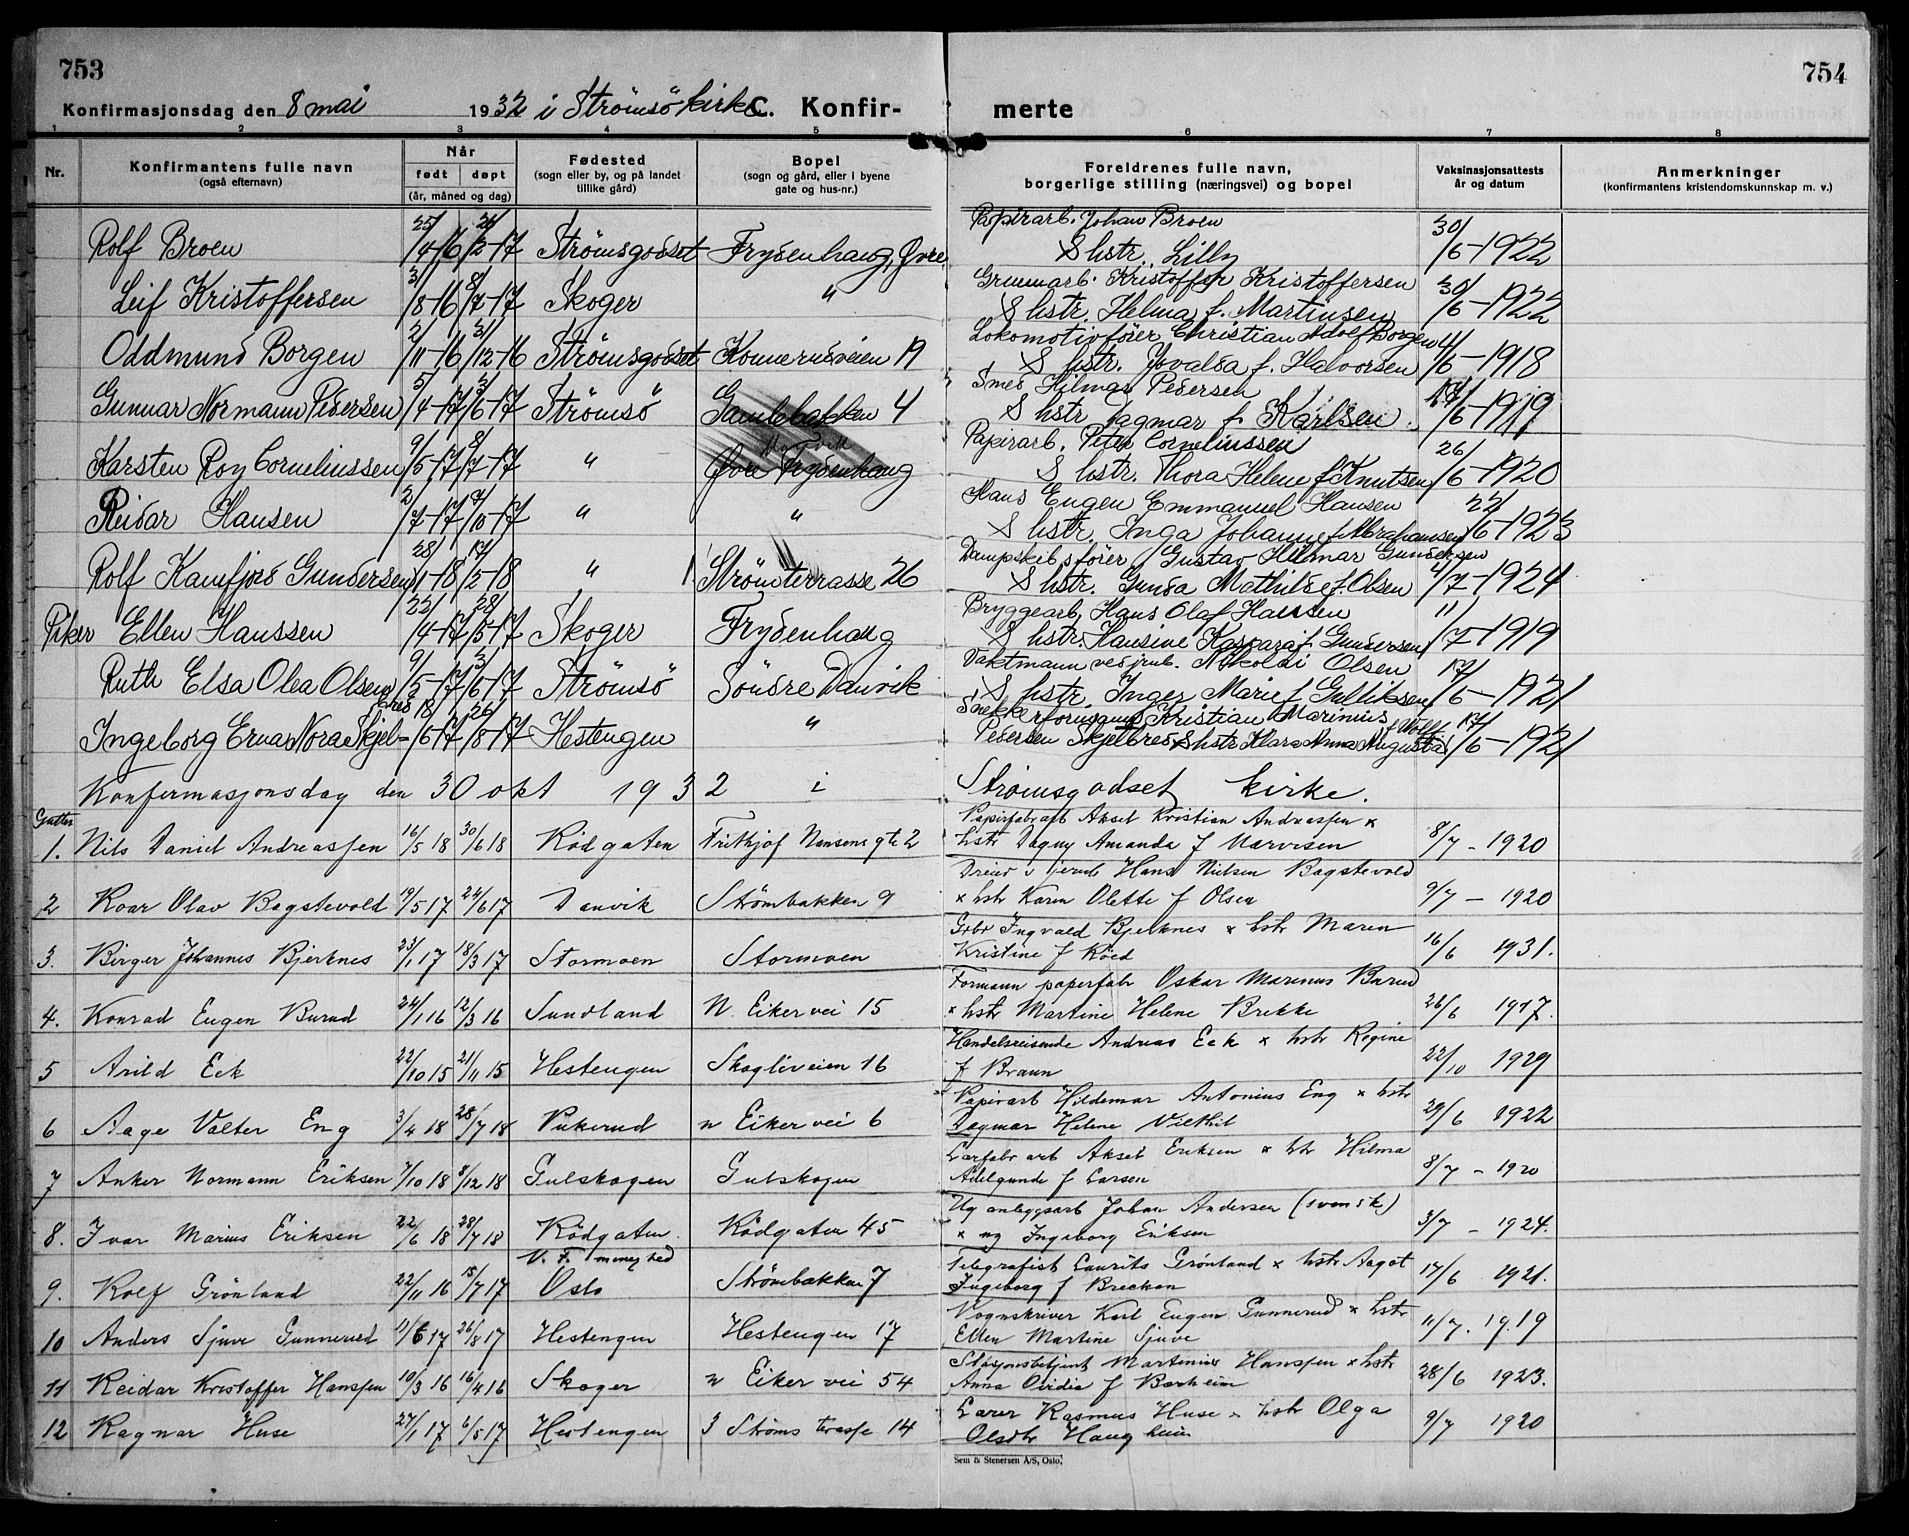 753
754
Konfirmasjonsdag den 8 mai 1932 i Strömsö kirke C. Konfir- merte
1 2 3 4 5 6 7 8
Nr. Konfirmantens fulle navn (også efternavn) Når født døpt (år, måned og dag) Fødested (sogn eller by, og på landet tillike gård) Bopel (sogn og gård, eller i byene gate og hus-nr.) Foreldrenes fulle navn, borgerlige stilling (næringsvei) og bopel Vaksinasjonsattests år og datum Anmerkninger (konfirmantens kristendomskunnskap m. v.)
Papirarb. Johan Broen
Rolf Broen 25/4-16 26/2-17 Strömsgodset Frydenhaug, Øvre & hstr. Lilly 30/6-1922
Kristoffer Kristoffersen
Leif Kristoffersen 31/8-16 8/7-17 Skoger " & hstr. Helma f. Martinsen 30/6-1922
Lokomotivföier Christian Adolf Borgen
Oddmund Borgen 2/11-16 31/12-16 Strömsgodset 19 & hstr. f. Halvorsen 4/6-1918
Smed Hilmar Pedersen
Gunnar Normann Pedersen 5/4-17 3/6-17 Strömsö Gamlebakken 4 & hstr Dagmar f Karlsen. 17/6-1919
Papirarb. Peter Corneliussen
Karsten Roy Corneliussen 9/5-17 8/7-17 " Øvre Frydenhaug & hstr. Thora Helene f Knutsen 26/6-1920
Hans Eugen Emmanuel Hansen
Reidar Hansen 2/7-17 7/10-17 " " & hstr. Inga Johanne f Abrahamsen 22/6-1923
Dampskibsföier Gustav Hilmar Gundersen
Rolf Gundersen 28/1-18 17/2-18 " Strömterrasse 26 & hstr. Gunda Mathilde f. Olsen 4/7-1924
Bryggearb. Hans Olaf Hansen
Piker Ellen Hanssen 22/4-17 28/5-17 Skoger Frydenhaug & hstr. Hansine Kaspara f. Gundersen 11/7-1919
Vaktmann ved jrnb. Nikolai Olsen
Ruth Elsa Olea Olsen 9/5-17 3/6-17 Strömsö Söndre Danvik & hstr. Inger Marie f Gulliksen 17/6-1921
Snekkerformann Kristian Marinius
Ingeborg Erna Nora Skjel-bred 18/6-17 26/8-17 Hestengen " Pedersen Skjelbred & hstr Klara Anna Augusta f. Wolff 17/6-1921
Konfirmasjonsdag den 30 okt 1932 i Strömsgodset kirke.
Gutter
Papirfabrarb Aksel Kristian Andreassen x
1. Nils Daniel Andreassen 16/5 18 30/6 18 Rödgaten Frithjof Nansens gte 2 hstr Dagny Amanda f Marvisen 8/7 - 1920
Dreier v jernb Hans Nielsen Bagstevold
2 Roar Olav Bagstevold 19/5 17 24/6 17 Danvik Strömbakken 9 x hstr Karen Olette f Olsen 9/7 - 1920
Grbr Ingvald Bjerknes x hstr Maren
3. Birger Johannes Bjerknes 23/1 17 18/3 17 Stormoen Stormoen Kristine f Röed 16/6 1931.
Formann papirfabr Oskar Marinus Burud
4. Konrad Eugen Burud 24/1 16 12/3 16 Sundland N. Eiker vei 15 x hstr Martine Helene Brekke 26/6 1917.
Handelsreisende Andreas Eek x hstr Regine
5 Arild Eek 22/10 15 21/11 15 Hestengen Skogliveien 16 f Braun 22/10 1929
Papirarb Hildemar Antonius Eng x hstr
6 Aage Valter Eng 3/4 18 28/7 18 Pukerud N Eiker vei 6 Dagmar Helene 29/6 1922
arb Aksel Eriksen x hstr Hilma
7 Anker Normann Eriksen 7/10 18 8/12 18 Gulskogen Gulskogen Adelgunde f Larsen 8/7 - 1920
Ug anleggsarb Johan Andersen (svensk)
8. Ivar Marius Eriksen 22/6 18 28/7 18 Rödgaten Rödgaten 45 x ug Ingeborg Eriksen 3/7 - 1924.
V. F. menighed
Telegrafist Laurits Grönland x hstr Aagot
9. Rolf Grönland 22/11 16 15/7 17 Oslo Strömbakken 7 Ingeborg f 17/6 1921.
Vognskriver Karl Eugen Gunnerud x hstr
10 Anders Sjuve Gunnerud 11/6 17 26/8 17 Hestengen Hestengen 17 Ellen Martine Sjuve 11/7. 1919
Stasjonsbetjent Martinius Hanssen x hstr
11 Reidar Kristoffer Hanssen 10/3 16 16/4 16 Skoger N Eiker vei 54 Anna Ovidia f 28/6 1923.
Lærer Rasmus Huse x hstr Olga
12 Ragnar Huse 27/1 17 6/5 17 Hestengen 3 Ströms terasse 14 Olsdtr Haugheim 9/7 1920
Sem & Stenersen A/S, Oslo.